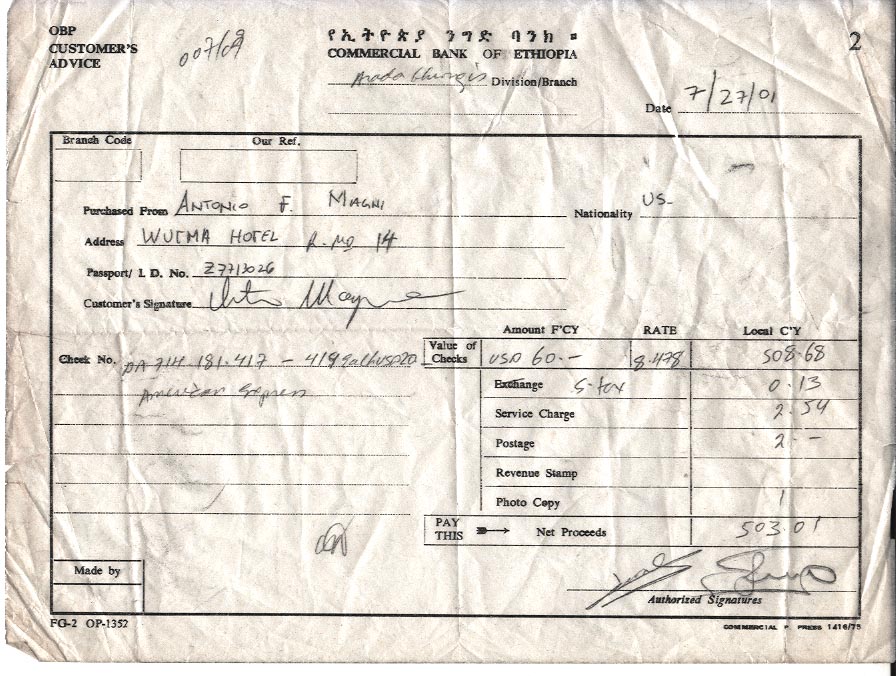 OBP
CUSTOMER'S
ADVICE
007/09
የኢትዮጵያ ንግድ ባንክ ።
COMMERCIAL BANK OF ETHIOPIA
2
Arada Ghiorgis Division/Branch
Date 7/27/01
Branch Code
Our Ref.
Purchased From ANTONIO F. MAGNI
Nationality US-
Address WUTMA HOTEL R.NO 14
Passport/ I. D. No. Z7713026
Customer's Signature
Amount F'CY RATE Local C'Y
Check No. DA 714.181.417 - 419 Each USD20
Value of Checks USD 60.- 8.478 508.68
American Express
Exchange S-tax 0.13
Service Charge 2.54
Postage 2.-
Revenue Stamp
Photo Copy 1
PAY THIS Net Proceeds 503.01
Made by
Authorized Signatures
FG-2 OP-1352
COMMERCIAL P. PRESS 1416/75